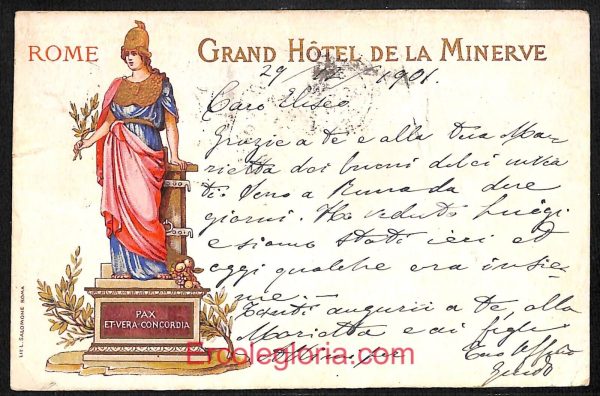 ROME
GRAND HÔTEL DE LA MINERVE
29 1901.
Caro Eliseo
Grazie a te e alla tua Ma-
rietta dei buoni dolci invia
ti. Sono a Roma da due
giorni. Ho veduto Luigi
e siamo stati ieri ed
oggi qualche ora insie-
me.
Tanti augurii a te, alla
Marietta e ai figli
tuo affmo
Guido
PAX
ET·VERA·CONCORDIA
LIT. L. SALOMONE ROMA
Ercolegloria.com